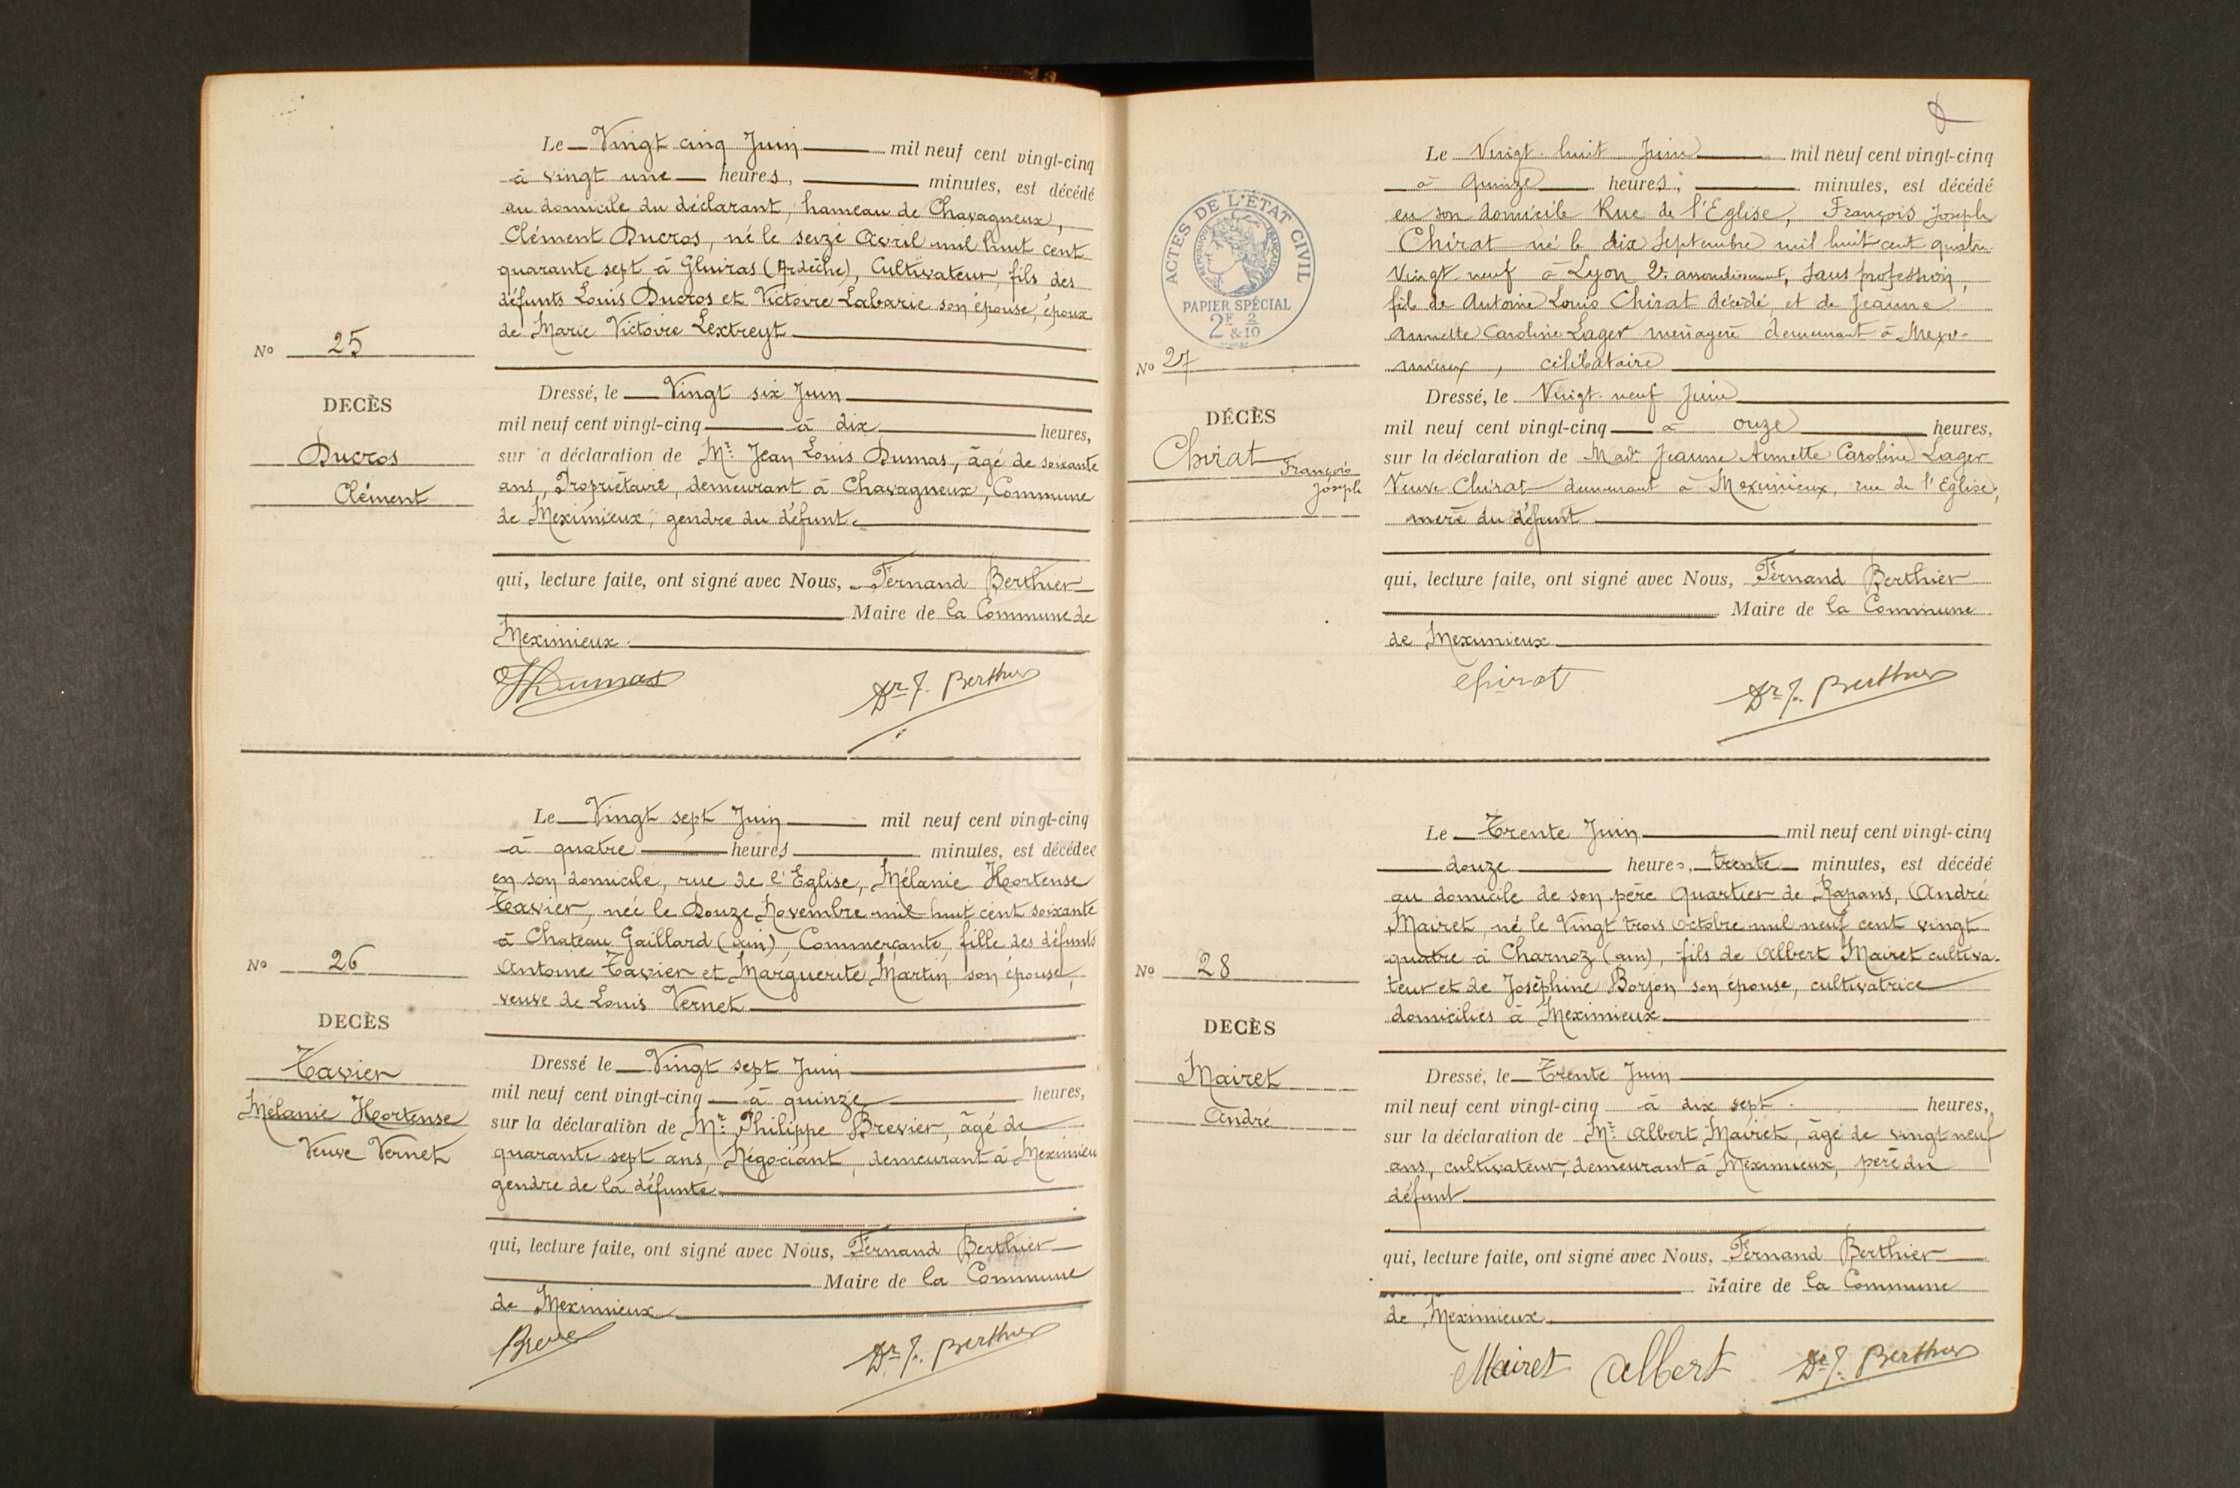 Le Vingt cinq Juin mil neuf cent vingt-cinq
à vingt une heures, minutes, est décédé
au domicile du déclarant, hameau de Chavagneux,
Clément Ducros, né le seize Avril mil huit cent
quarante sept à Gluiras (Ardèche), Cultivateur, fils des
défunts Louis Ducros et Victoire Labarie son épouse, époux
de Marie Victoire Lextreyt
No 25
DECÈS
Ducros
Clément
Dressé, le Vingt six Juin
mil neuf cent vingt-cinq à dix heures,
sur a déclaration de Mr. Jean Louis Dumas, âgé de soixante
ans, Propriétaire, demeurant à Chavagneux, Commune
de Meximieux, gendre du défunt.
qui, lecture faite, ont signé avec Nous, Fernand Berthier
Maire de la Commune de
Meximieux.
Dumas Dr F. Berthier
Le Vingt sept Juin mil neuf cent vingt-cinq
à quatre heures minutes, est décédée
en son domicile, rue de l'Eglise, Mélanie Hortense
Tavier, née le Douze Novembre mil huit cent soixante
à Chateau Gaillard (ain), Commerçante, fille des défunts
Antoine Tavier et Marguerite Martin son épouse,
veuve de Louis Vernet
No 26
DECÈS
Tavier
Mélanie Hortense
Veuve Vernet
Dressé le Vingt sept Juin
mil neuf cent vingt-cinq à quinze heures,
sur la déclaration de Mr. Philippe Brevier, âgé de
quarante sept ans, Négociant, demeurant à Meximieu
gendre de la défunte
qui, lecture faite, ont signé avec Nous, Fernand Berthier
Maire de la Commune
de Meximieux
Dr F. Berthier
ACTES DE L'ÉTAT CIVIL
RÉPUBLIQUE FRANÇAISE
PAPIER SPÉCIAL
2F 2/10
&
Le Vingt-huit Juin mil neuf cent vingt-cinq
à quinze heures, minutes, est décédé
en son domicile Rue de l'Eglise, François Joseph
Chirat né le dix Septembre mil huit cent quatre
Vingt neuf à Lyon 2e arrondissement, sans profession,
fils de Antoine Louis Chirat décédé, et de Jeanne
Annette Caroline Lager ménagère demeurant à Mexi-
mieux, célibataire
No 27
DÉCÈS
Chirat François
Joseph
Dressé, le Vingt-neuf Juin
mil neuf cent vingt-cinq à onze heures,
sur la déclaration de Made Jeanne Annette Caroline Lager
Veuve Chirat demeurant à Meximieux, rue de l'Eglise,
mère du défunt
qui, lecture faite, ont signé avec Nous, Fernand Berthier
Maire de la Commune
de Meximieux
Chirat Dr F. Berthier
Le Trente Juin mil neuf cent vingt-cinq
douze heures, trente minutes, est décédé
au domicile de son père Quartier de Rapans, André
Mairet, né le Vingt trois octobre mil neuf cent vingt
quatre à Charnoz (ain), fils de Albert Mairet cultiva-
teur et de Joséphine Borjon son épouse, cultivatrice
domiciliés à Meximieux
No 28
DECÈS
Mairet
André
Dressé, le Trente Juin
mil neuf cent vingt-cinq à dix sept heures,
sur la déclaration de Mr. Albert Mairet, âgé de vingt neuf
ans, cultivateur, demeurant à Meximieux, père du
défunt
qui, lecture faite, ont signé avec Nous, Fernand Berthier
Maire de la Commune
de Meximieux
Mairet Albert Dr F. Berthier